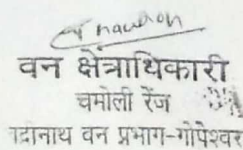 वन क्षेत्राधिकारी
चमोली रेंज
बद्रीनाथ वन प्रभाग-गोपेश्वर